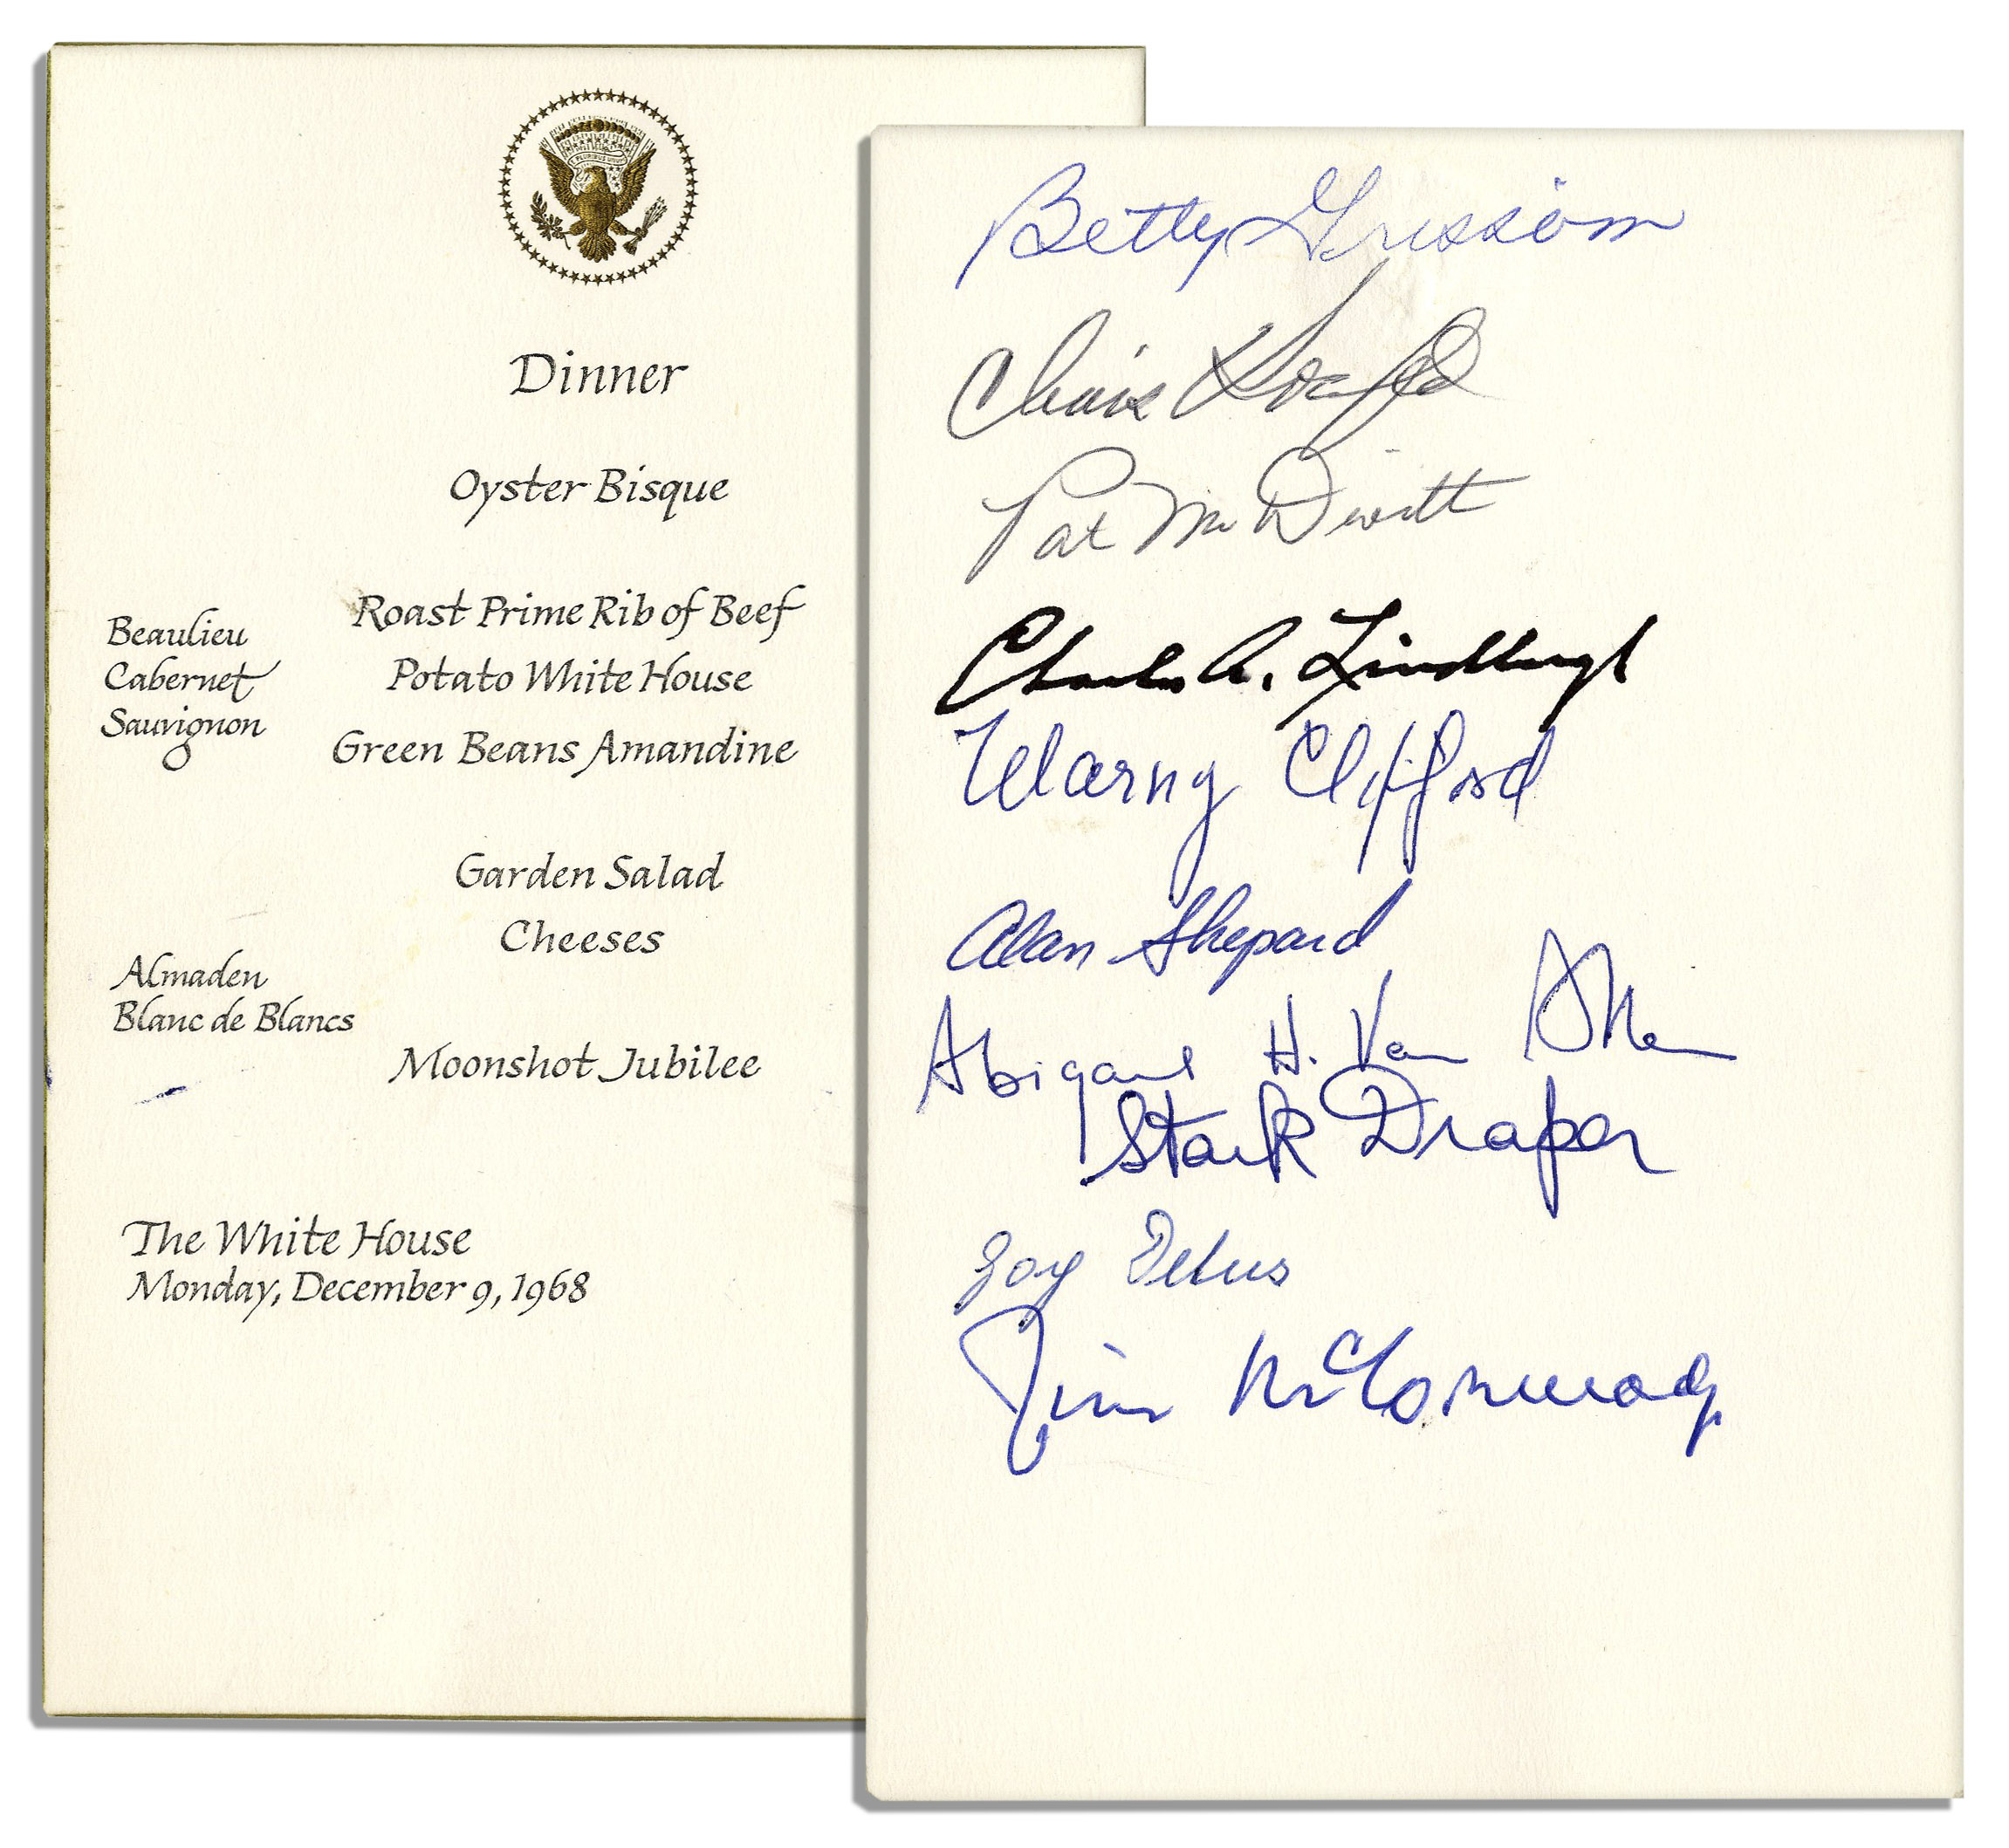 E PLURIBUS UNUM
Dinner
Oyster Bisque
Roast Prime Rib of Beef
Beaulieu
Cabernet
Sauvignon
Potato White House
Green Beans Amandine
Garden Salad
Cheeses
Almaden
Blanc de Blancs
Moonshot Jubilee
The White House
Monday, December 9, 1968
Betty Grissom
Chris Kraft
Pat McDivitt
Charles A. Lindbergh
Clifford
Alan Shepard
Abigail H. Van Allen
Stark Draper
Jim McCormack